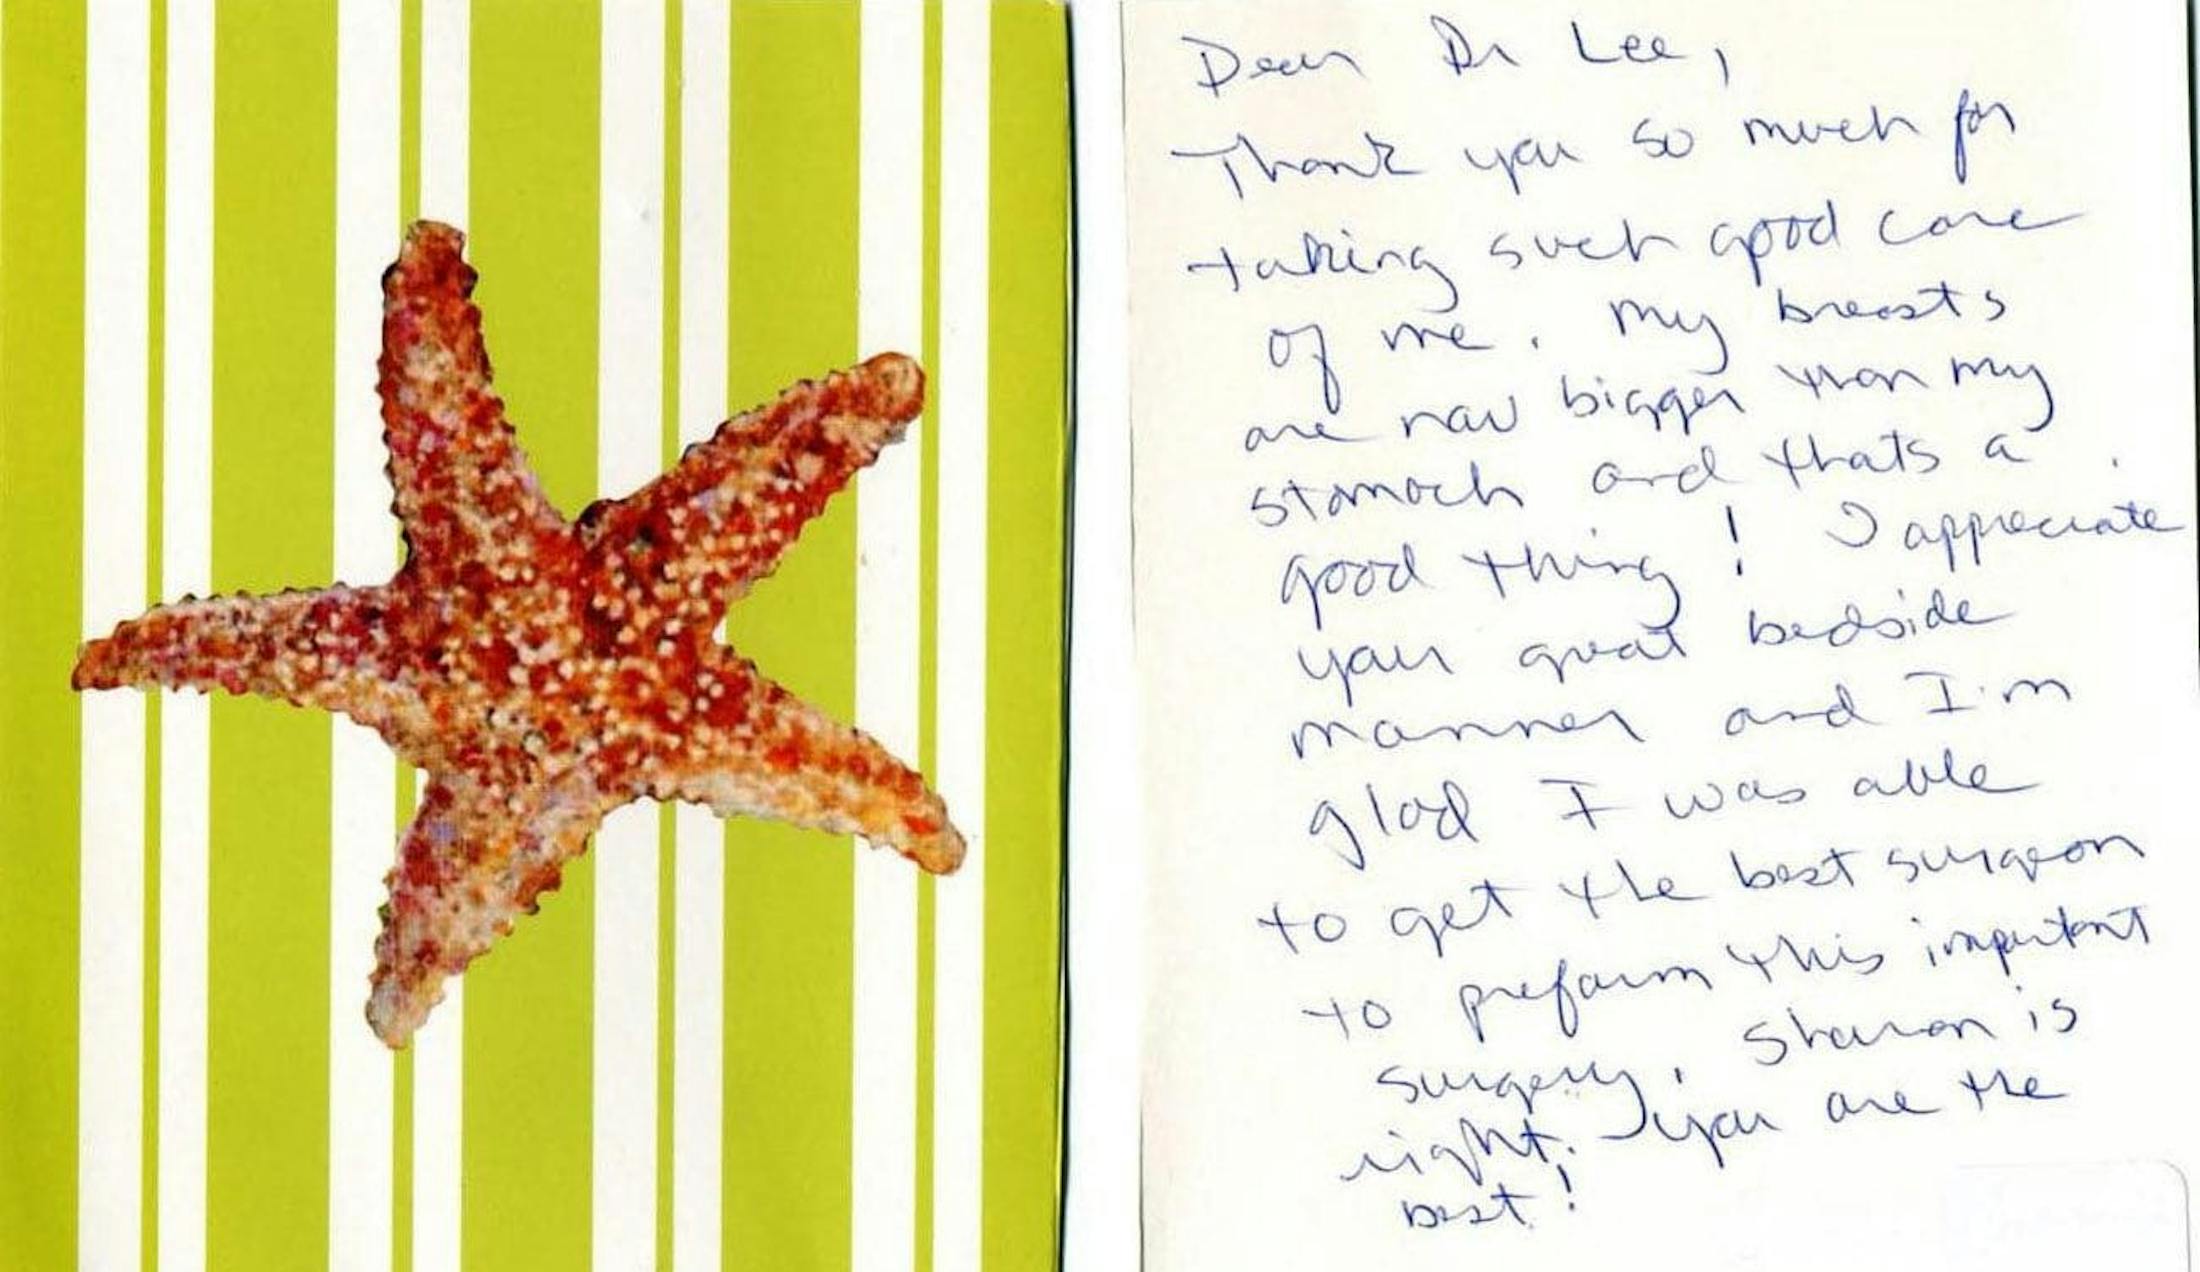 Dear Dr Lee,
Thank you so much for
taking such good care
of me. My breasts
are now bigger than my
stomach and thats a
good thing! I appreciate
your great bedside
manner and I'm
glad I was able
to get the best surgeon
to preform this important
surgery. Sharon is
right. You are the
best!